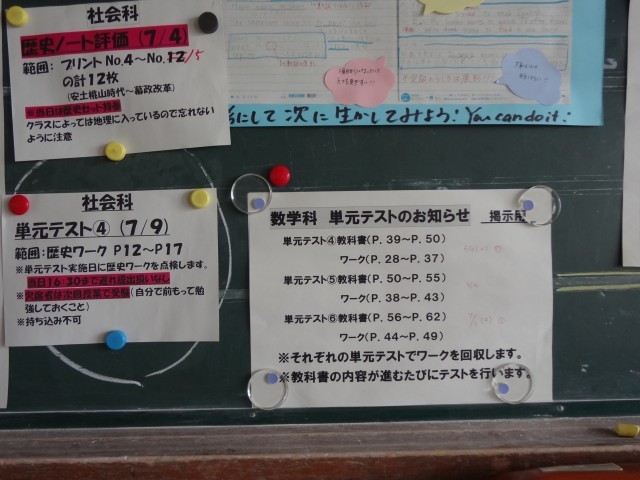 社会科
歴史ノート評価 (7/4)
範囲: プリント No.4～No.12/5
の計12枚
(安土桃山時代～幕政改革)
※当日は歴史セット持参
クラスによっては地理に入っているので忘れない
ように注意
にして 次に 生かしてみよう! You can do it!
社会科
単元テスト④ (7/9)
範囲:歴史ワーク P12～P17
※単元テスト実施日に歴史ワークを点検します。
当日16:30まで遅れ提出扱いなし
※欠席者は次回授業で受験(自分で前もって勉
強しておくこと)
※持ち込み不可
数学科 単元テストのお知らせ 掲示用
単元テスト④教科書(P. 39～P. 50)
ワーク(P. 28～P. 37)
単元テスト⑤教科書(P. 50～P. 55)
ワーク(P. 38～P. 43)
単元テスト⑥教科書(P. 56～P. 62)
ワーク(P. 44～P. 49)
※それぞれの単元テストでワークを回収します。
※教科書の内容が進むたびにテストを行います。